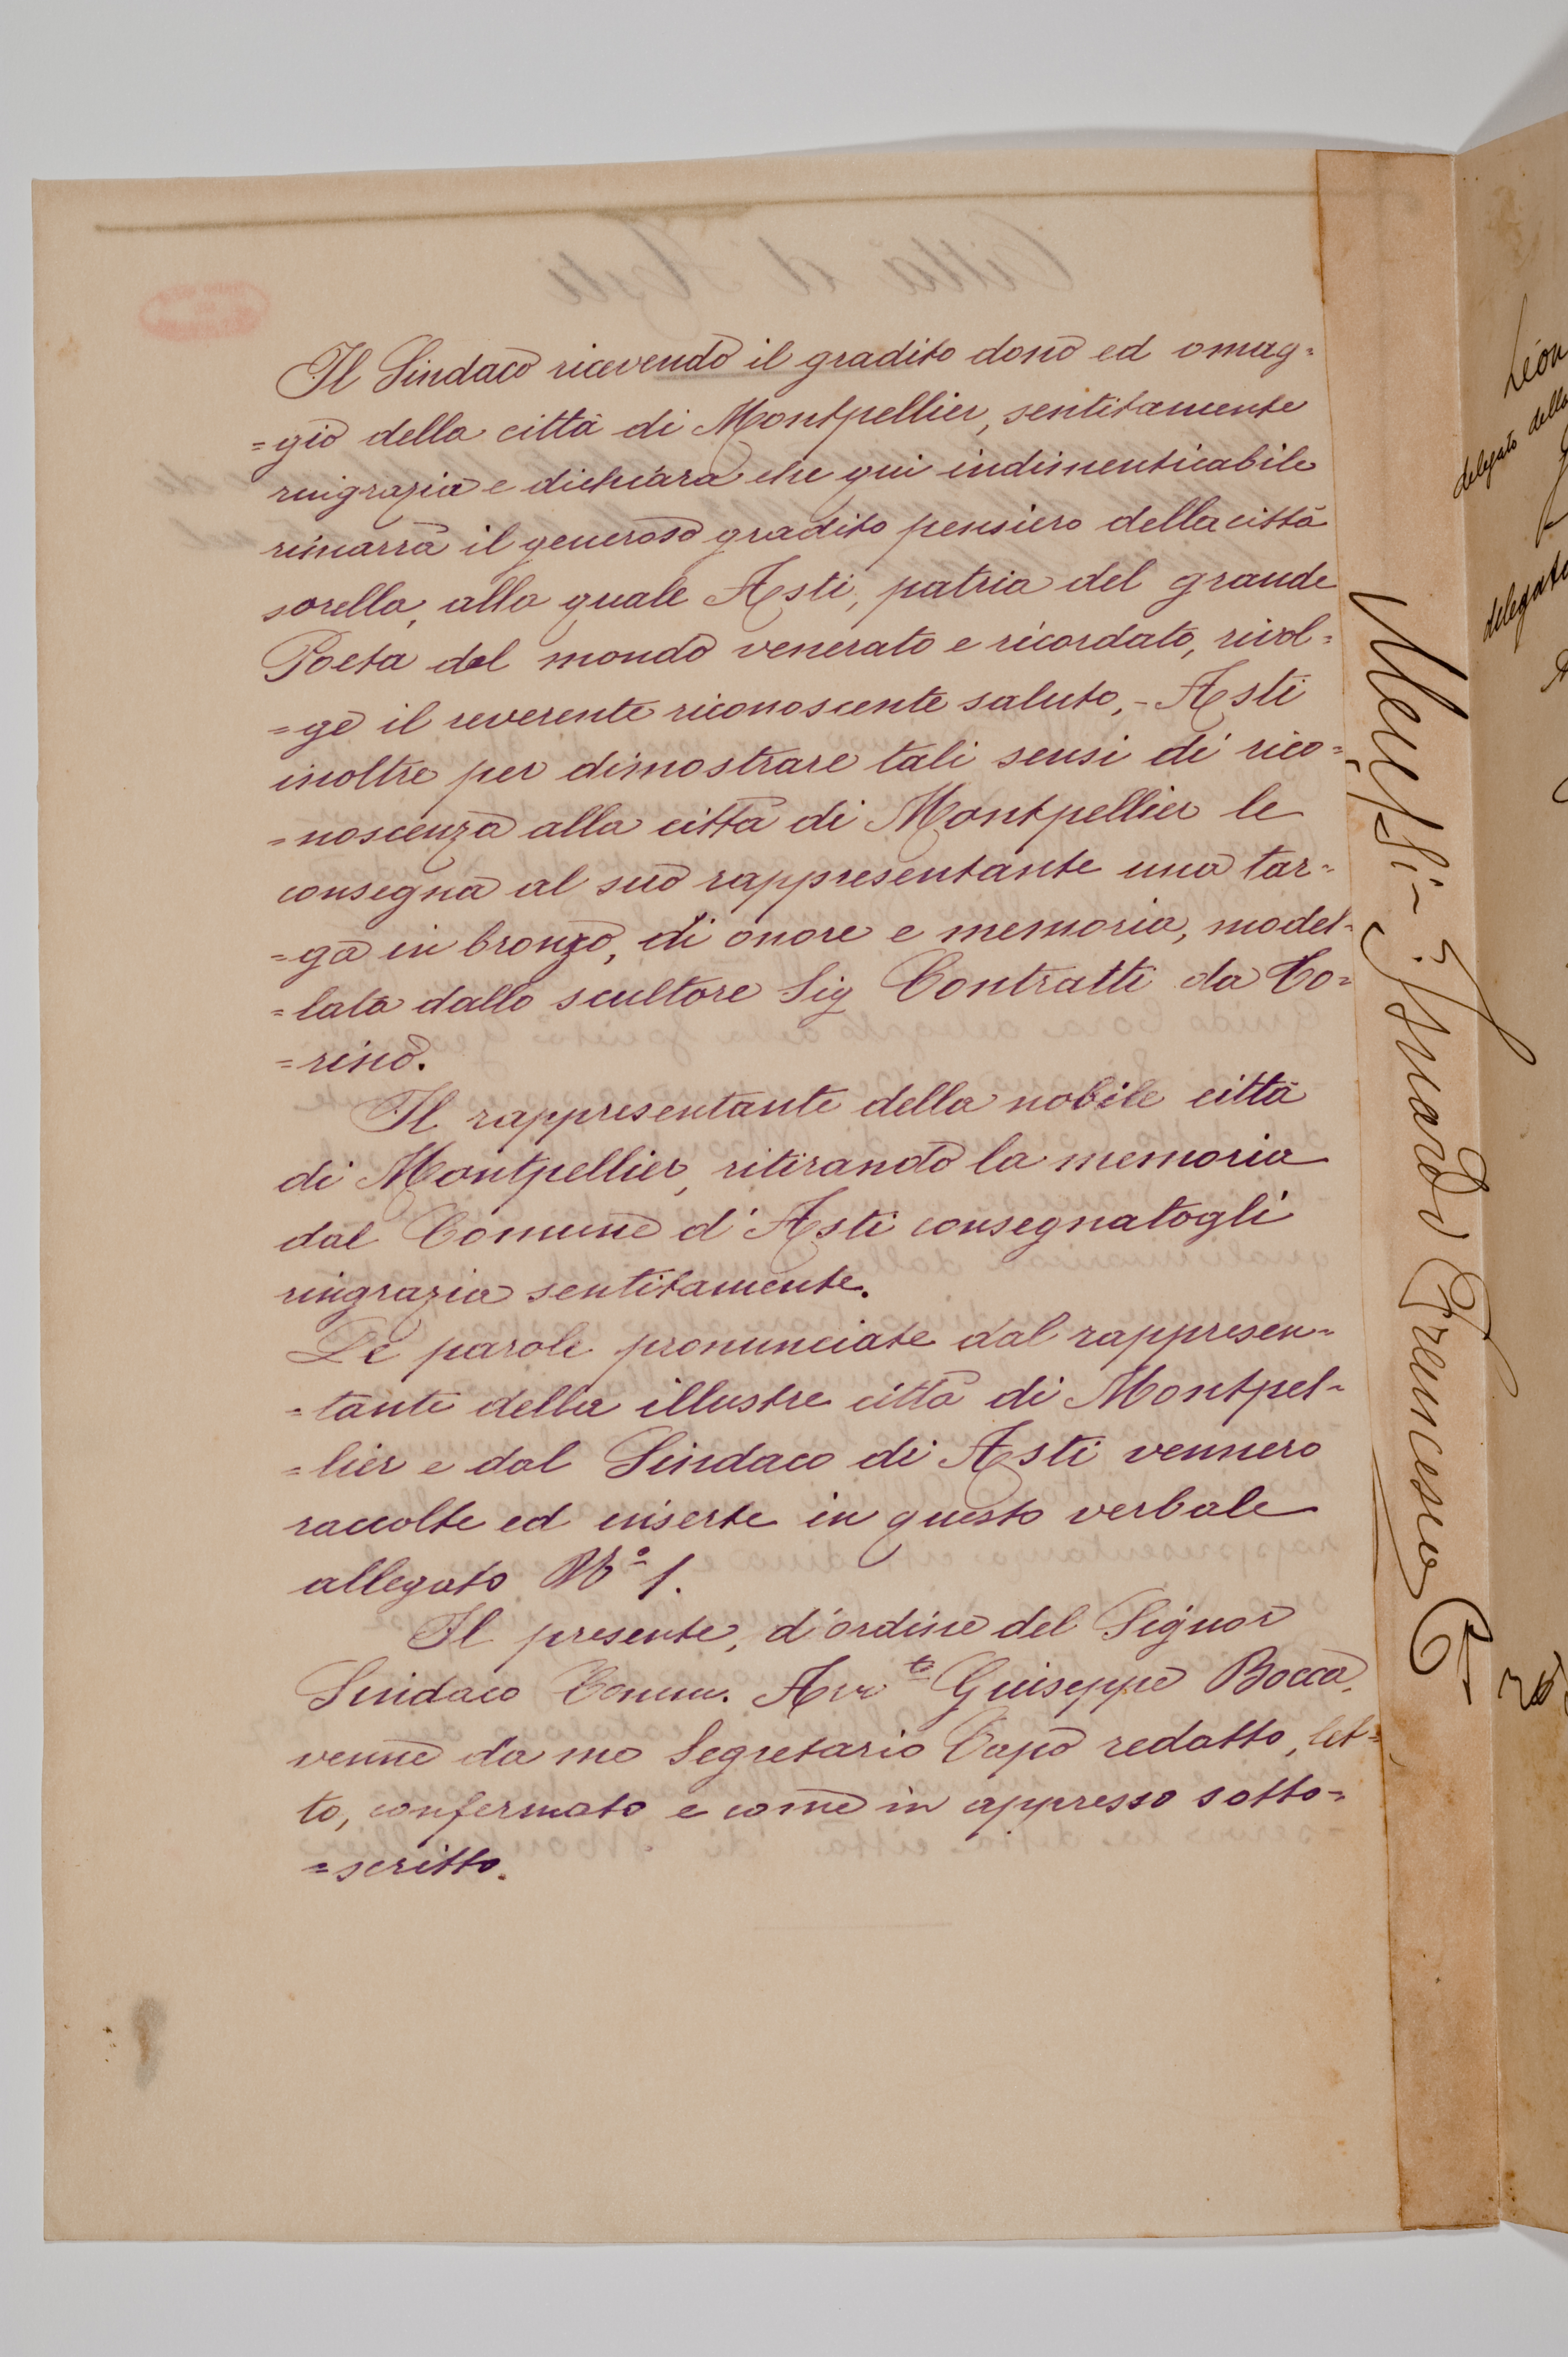 Il Sindaco ricevendo il gradito dono ed omag=
=gio della città di Montpellier, sentitamente
ringrazia e dichiara che qui indimenticabile
rimarrà il generoso gradito pensiero della città
sorella, alla quale Asti, patria del grande
Poeta dal mondo venerato e ricordato, rivol=
=ge il reverente riconoscente saluto, - Asti
inoltre per dimostrare tali sensi di rico=
=noscenza alla città di Montpellier le
consegna al suo rappresentante una tar=
=ga in bronzo, di onore e memoria, model=
=lata dallo scultore Sig Contratti da To=
=rino.
Il rappresentante della nobile città
di Montpellier, ritirando la memoria
dal Comune d'Asti consegnatogli
ringrazia sentitamente.
Le parole pronunciate dal rappresen=
=tante della illustre città di Montpel=
=lier e dal Sindaco di Asti vennero
raccolte ed inserte in questo verbale
allegato N° 1.
Il presente, d'ordine del Signor
Sindaco Comm. Avv.to Giuseppe Bocca,
venne da me Segretario Capo redatto, let=
to, confermato e come in appresso sotto=
=scritto.
Isnardi Francesco
Léon
delegato della
delegato